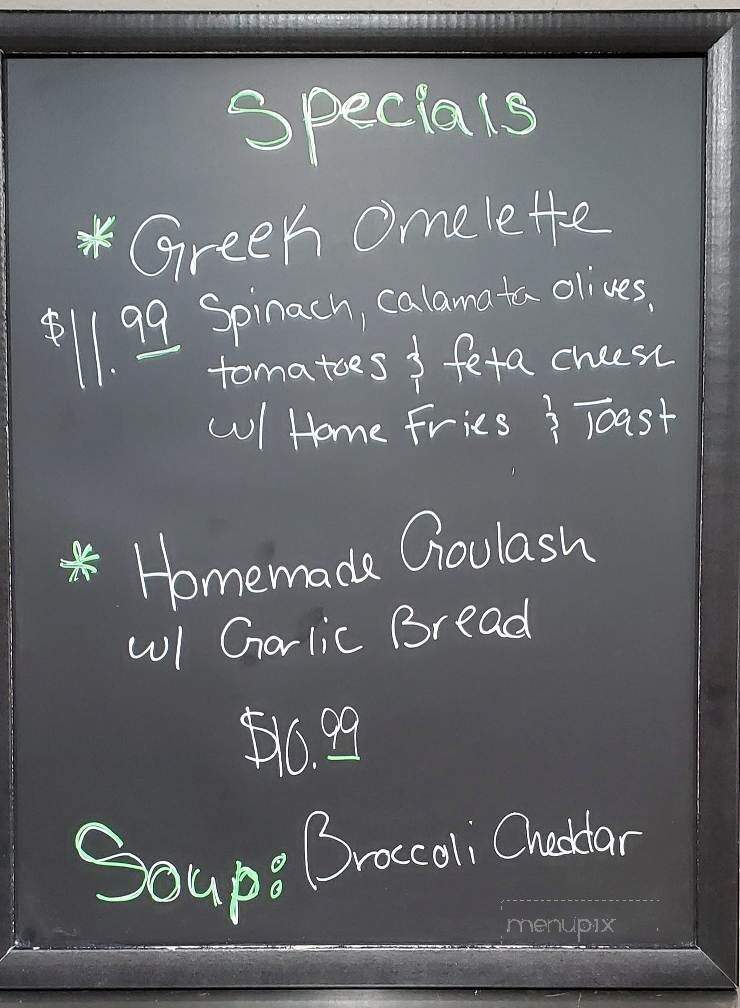 Specials
* Greek Omelette
$11.99 Spinach, calamata olives,
tomatoes & feta cheese
w/ Home Fries & Toast
* Homemade Goulash
w/ Garlic Bread
$10.99
Soup: Broccoli Cheddar
menupix